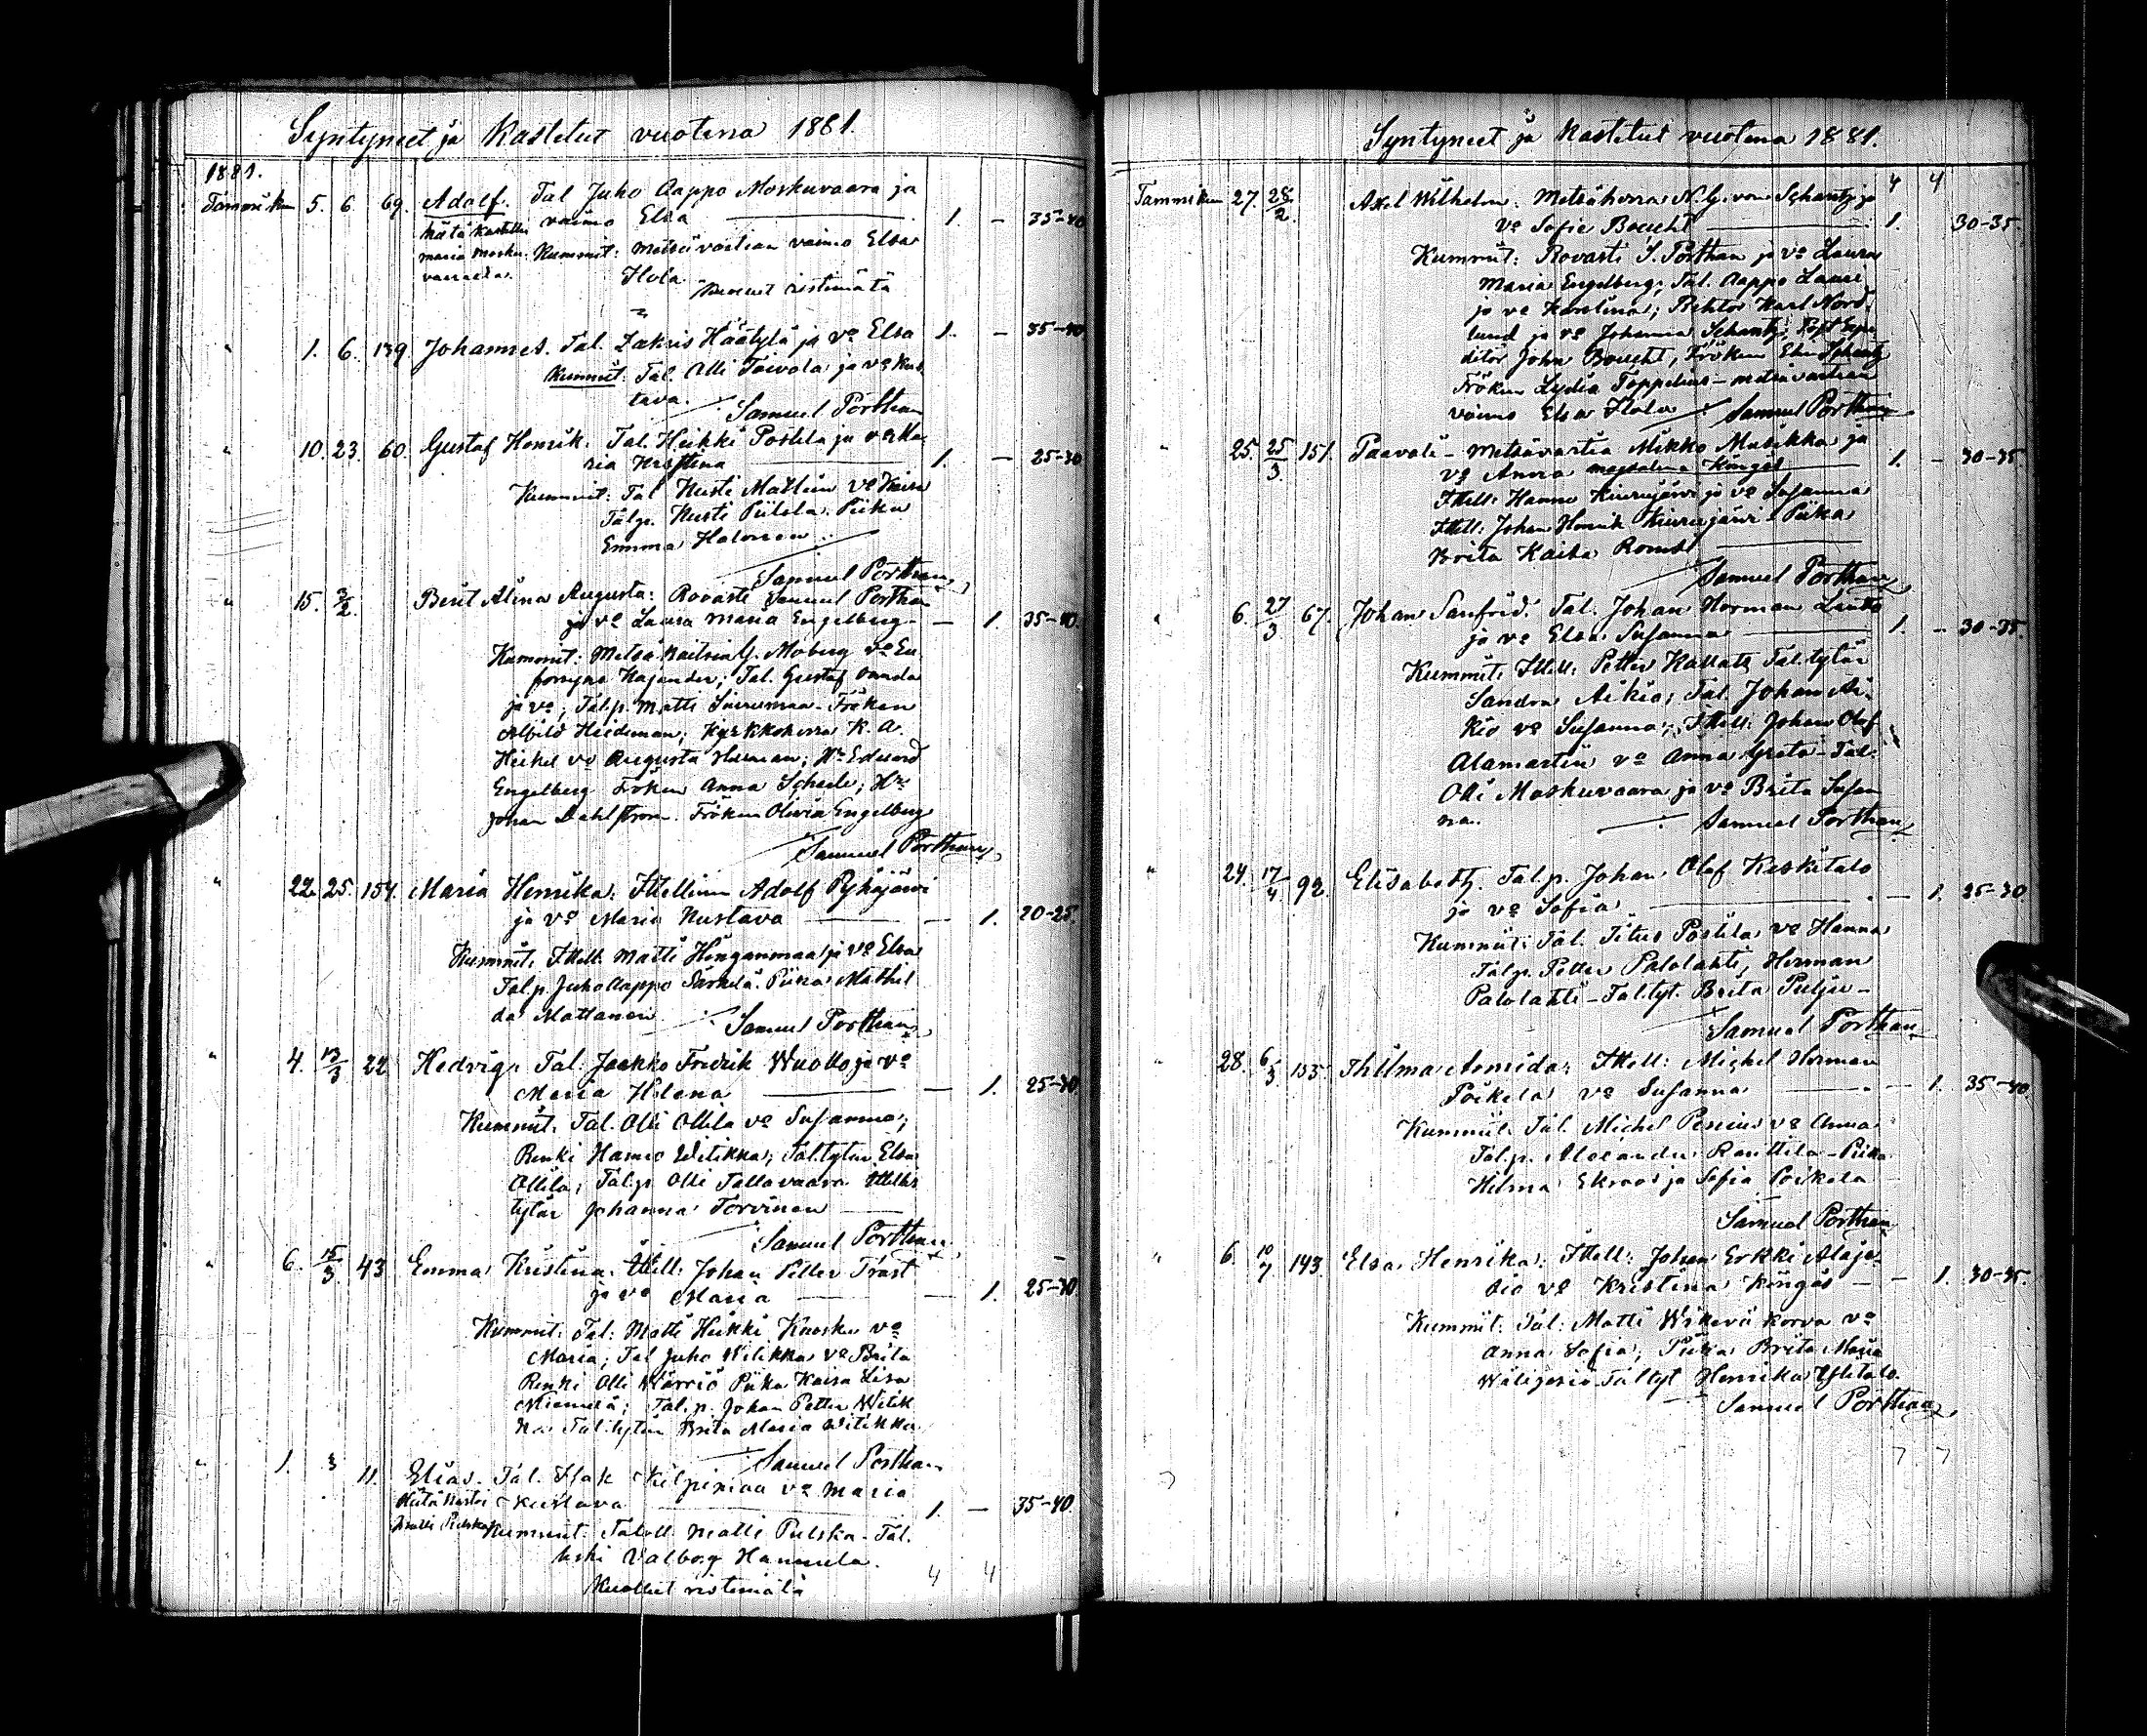 Syntyneet ja Kastetut vuotena 1881.
1881.
Tammikun 5. 6. 69. Adolf. Tal Juho Aappo Moskuvaara ja
vaimo Elsa 1. - 35-40
Hätä kastettu
maria Mosku-
vaaralta.
Kummit: Metsävartian vaimo Elsa
Ilola
Kuollut ristimätä
" 1. 6. 139. Johannes. Tal. Zakris Häätylä ja vo Elsa 1. - 35-40
Kummit: Tal. Olli Toivola ja vo Kus
tava.
Samuel Porthan
" 10. 23. 60. Gustaf Henrik. Tal. Heikki Postila ja vo Ma
ria Kristina 1. - 25-30
Kummit: Tal Kusti Mattinen vo Kaisa
Talp. Kusti Piilola. Piika
Emma Halonen
Samuel Porthan
" 15. 3/2. Berit Alina Augusta: Rovasti Samuel Porthan
ja vo Laura Maria Engelberg - 1. 35-40.
Kummit: Metsä G. Moberg vo Eu
frosyne Kajander; Tal. Gustaf
ja vo; Talp. Matti Siurumaa - Fröken
Heideman; Kyrkkoherra K. A.
Heikel vo Augusta; Hr Eduard
Engelberg Fröken Anna Scheele; Hr
Johan Dahlström. Fröken Olivia Engelberg
Samuel Porthan
" 22. 25. 154. Maria Henrika: Ittellinen Adolf Pyhäjärvi
ja vo Maria Kustava - 1. 20-25.
Kummit. Ittell. Matti Hinganmaa ja vo Elsa
Talp. Juho Aappo Särkelä. Piika Mathil
da Mattanen
Samuel Porthan
" 4. 13/3 22 Hedvig. Tal. Jaakko Fredrik Wuollo ja vo
Maria Helena - 1. 25-30
Kummit. Tal. Olli Ollila vo Susanna;
Renki Hannu Witikka; Tal.tytär Elsa
Ollila; Talp. Olli Tallavaara Ittells
tytär Johanna Torvinen
Samuel Porthan
" 6. 15/3. 43 Emma Kristina. Ittell: Johan Petter Trast
ja vo Maria - 1. 25-30.
Kummit. Tal: Matti Heikki Knoska vo
Maria; Tal Juho Witikka vo Brita
Renki Olli Wärriö Piika Kaisa Liisa
Niemelä; Tal.p. Johan Petter Witik
ka Tal.tytär Brita Maria Witikka
Samuel Porthan
" 1. 3 11. Elias. Tal. Isak Kilpimaa vo Maria
Kustava 1. - 35-40.
Hätä kastoi
Matti Pulska
Kummit: Matti Pulska - Tal.
leski Valborg Hannula.
Kuollut ristimätä
4 4
Syntyneet ja Kastetut vuotena 1881.
4 4
Tammikun 27. 28/2. Axel Wilhelm. Metsäherra N. G. von Schantz ja
vo Sofie Boucht 1. 30-35.
Kummit: Rovasti S. Porthan ja vo Laura
Maria Engelberg; Tal. Aappo Lauri
ja vo Karolina; Rehtor Karl Nord
lund ja vo Johanna Schantz; Post Expe
ditör John Boucht, Fröken Schantz
Fröken Lydia Toppelius - metsävartian
vaimo Elsa Ilola Samuel Porthan
" 25. 25/3. 151. Paavali - Metsävartia Mikko Musikka ja
vo Anna Magdalena Köngäs 1. - 30-35.
Ittell: Hannu Kiurujärvi ja vo Susanna
Ittell: Johan Henrik Kiurujärvi - Piika
Brita Kaisa
Samuel Porthan
" 6. 27/3 67. Johan Sanfrid. Tal. Johan Herman Lintto
ja vo Elsa Susanna 1. - 30-35.
Kummit: Ittell: Petter Kallatz Tal.tytär
Sandra Aikio; Tal. Johan Ai-
kio vo Susanna; Ittell: Johan Olof
Alamartin vo Anna Greta - Tal:
Olli Moskuvaara ja vo Brita Susan
na.
Samuel Porthan
" 24. 17/4 92. Elisabeth. Tal.p. Johan Olof Keskitalo
ja vo Sofia - 1. 25-30
Kummit: Tal. Titus Postila vo Hanna
Talp. Petter Palolahti; Herman
Palolahti - Taltyt. Brita Puljun -
Samuel Porthan
" 28. 6/5 155 Thilma Armida; Ittell: Michel Herman
Poikela vo Susanna - 1. 35-40.
Kummit. Tal. Michel vo Anna
Tal.p. Alexander Rauttila - Piika
Hilma Ekroos ja Sofia Poikela
Samuel Porthan
" 6. 10/7 143. Elsa Henrika: Ittell: Johan Erkki Alaje-
sio vo Kristina Köngäs - 1. 30-35.
Kummit: Tal: Matti korva vo
Anna Sofia; Piika Brita Maria
Wälijesiö Taltyt Henrika Ylitalo.
Samuel Porthan
7 7